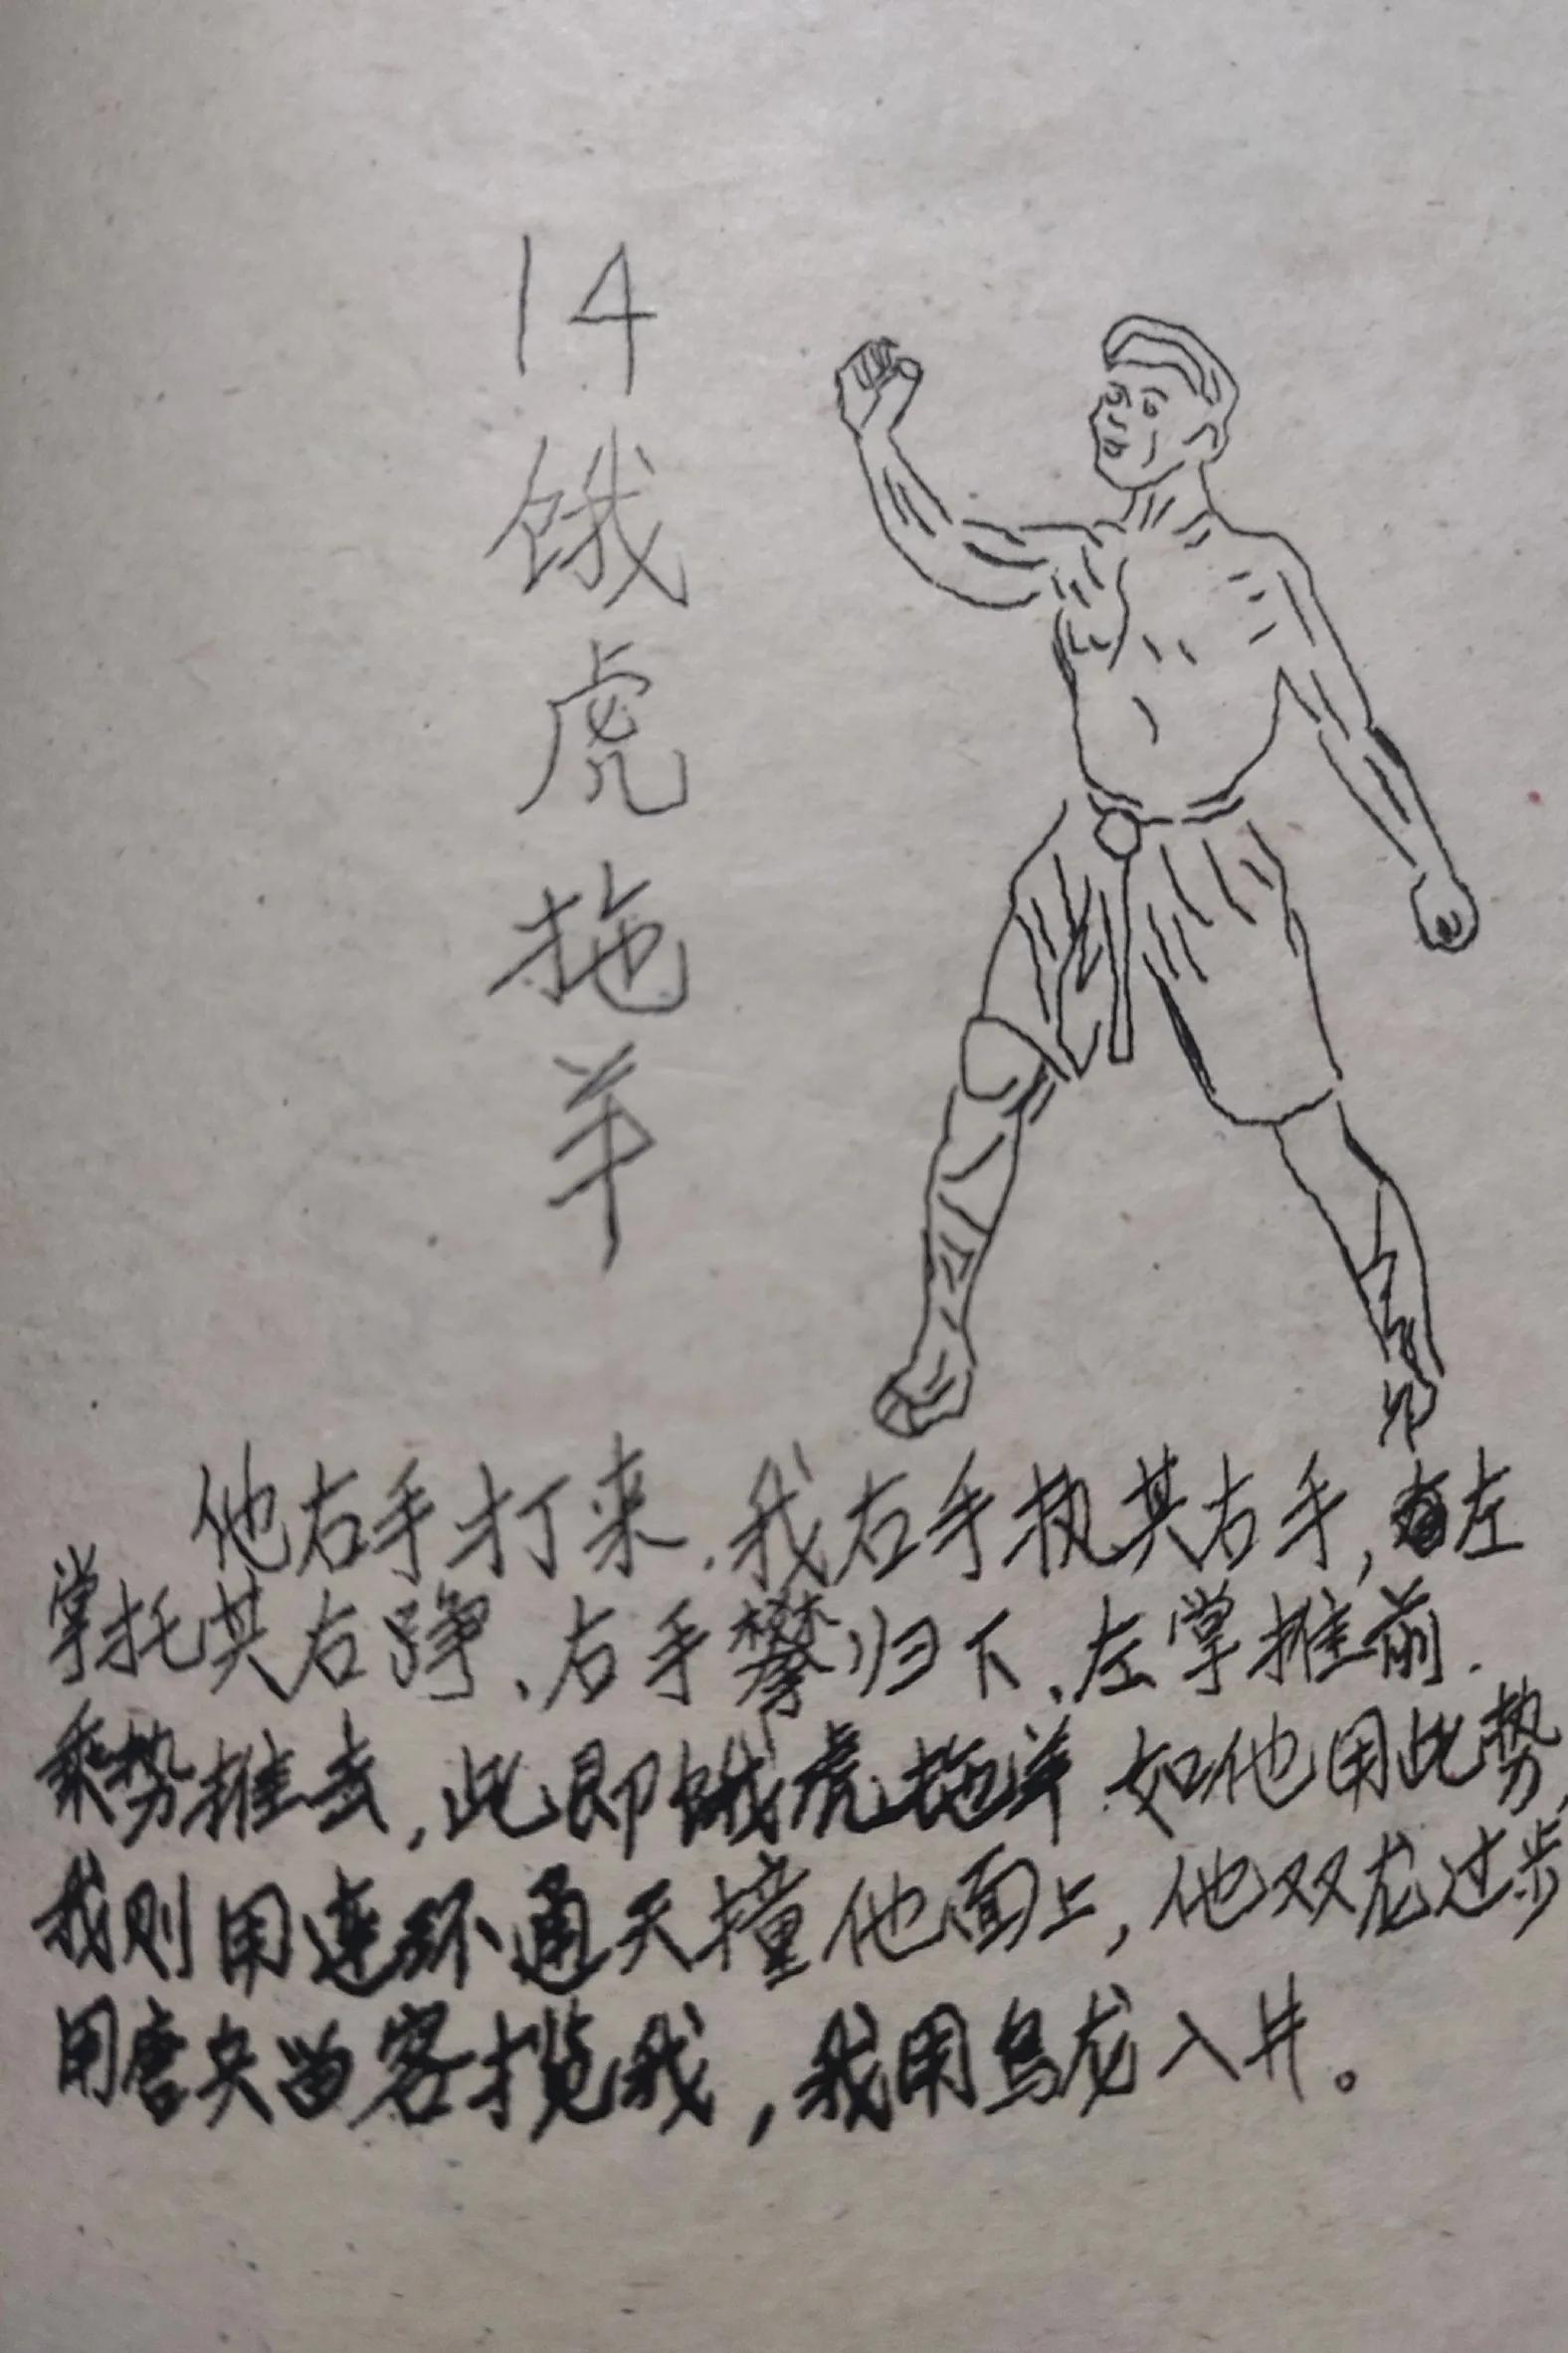 14
饿虎拖羊
他右手打来.我右手执其右手,左
掌托其右踭、右手攀归下、左掌推前.
乘势推去,此即饿虎拖羊.如他用此势,
我则用连环通天撞他面上,他双龙过步
用唐央留客揽我,我用乌龙入井。